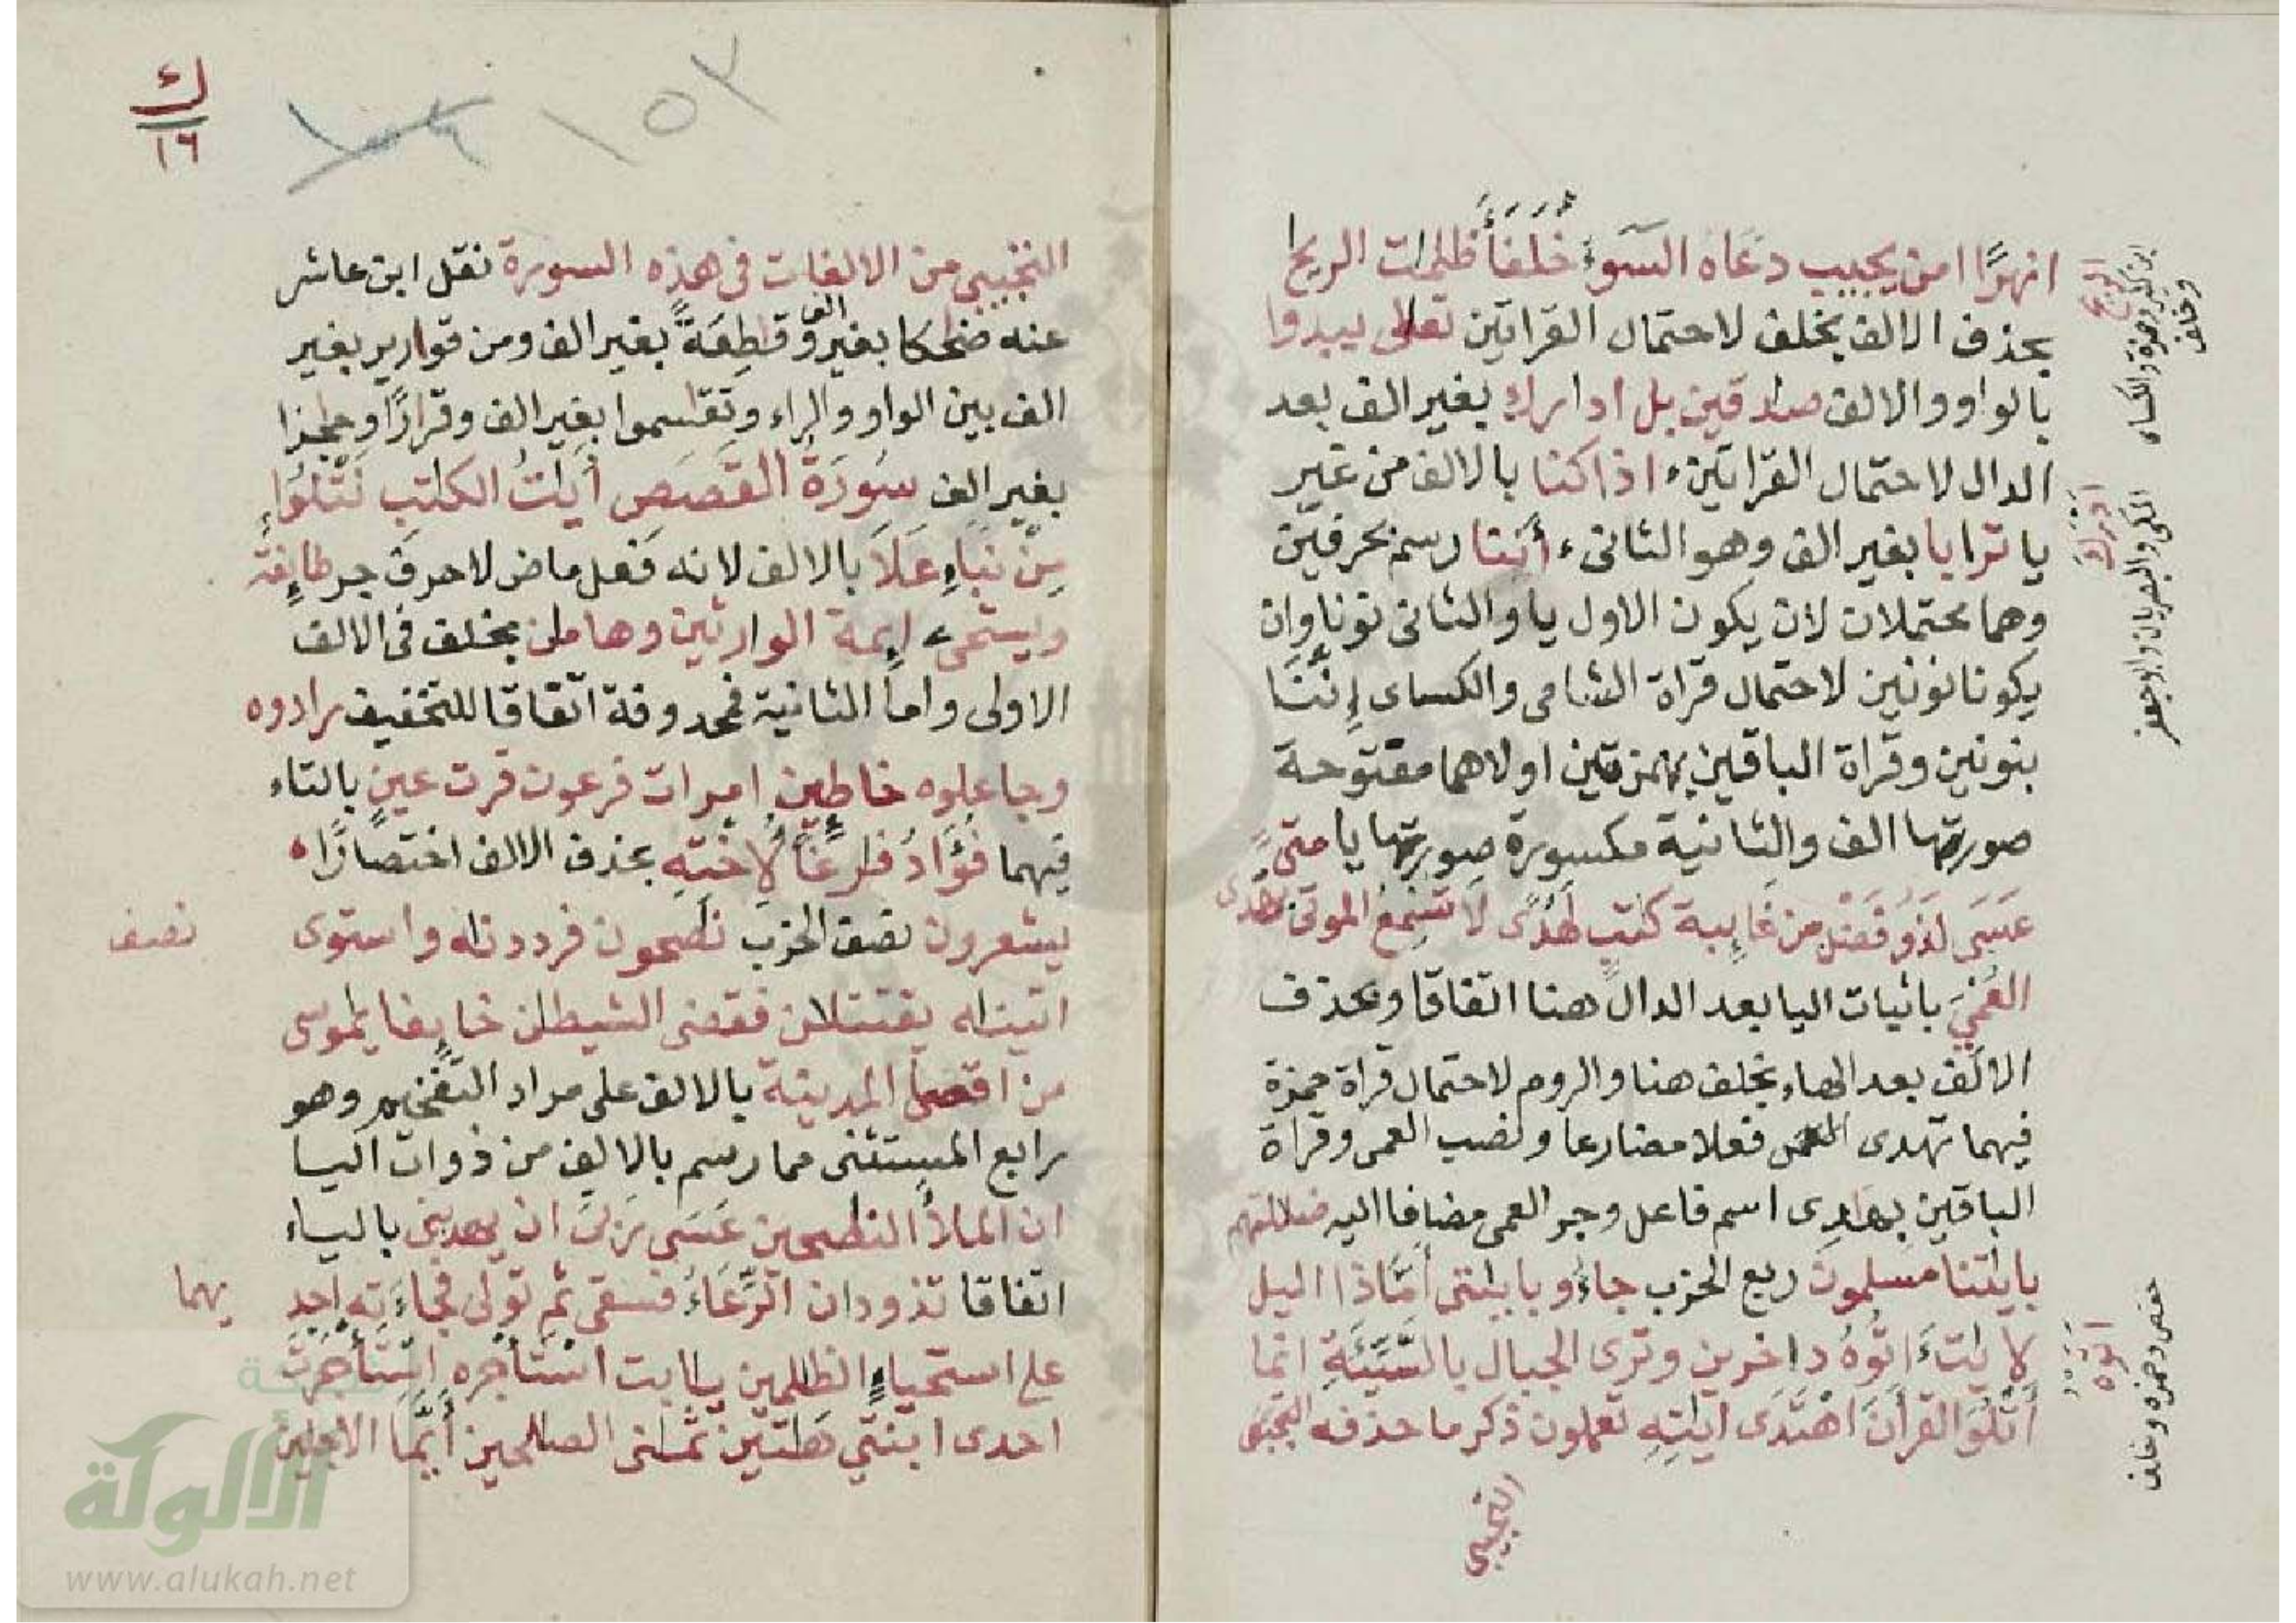 انهرًا امن يجيب دعاه السوء خلفأ ظلمات الريح
بحذف الالف بخلف لاحتمال القراتين تعلى يبدوا
بالواو والالف صدقين بل ادارك بغير الف بعد
الدال لاحتمال القراتين ء اذا كنا بالالف من غير
يا ترابا بغير الف وهو الثانى ء أئنا رسم بحرفين
وهما محتملان لان يكون الاول يا والثانى نونا وان
يكونا نونين لاحتمال قراة الشامى والكساى إننا
بنونين وقراة الباقين بهمزتين اولاهما مفتوحة
صورتها الف والثانية مكسورة صورتها يا متى
عسى لذو فضل من غايبة كتب لهدى لا تسمع الموتى بهدى
العمى باثبات اليا بعد الدال هنا اتفاقا وبحذف
الالف بعد الهاء بخلف هنا والروم لاحتمال قراة حمزة
فيهما تهدى العمى فعلا مضارعا ونصب العمى وقراة
الباقين بهادى اسم فاعل وجر العمى مضافا اليه ضلالتهم
بايتنا مسلمون ربع الحزب جاءو بايتى أمّاذا اليل
لايت اتوه داخرين وترى الجبال بالسيئة انما
أتلوا القرأن اهتدى ايته تعملون ذكر ما حذفه التجيبى
التجيبى
الريح
ابن كثير وحمزة والكساى
وخلف
ادرك
المكى والبصريان وابو جعفر
اتوه
حفص وحمزه وخلف
ك
١٦
١٥٣
التجيبى من الالفات فى هذه السورة نقل ابن عاشر
عنه ضحكا بغير الف وقطعة بغير الف ومن قوارير بغير
الف بين الواو والراء وتقسموا بغير الف وقرارًا وحجزا
بغير الف سورة القصص أيت الكتب نتلوا
من نباء علا بالالف لانه فعل ماض لاحرف جر طايفة
ويستحى ء ايمة الوارثين وهامن بخلف فى الالف
الاولى واما الثانية فمحدوفة اتفاقا للتخفيف رادوه
وجاعلوه خاطين امرات فرعون قرت عين بالتاء
فيهما فؤاد فرغًا لاخته بحذف الالف اختصارًا ه
يشعرون نصف الحزب نصحون فرددنه واستوى
نصف
اتينه يقتتلان فقضى الشيطن خايفا يموسى
من اقصا المدينة بالالف على مراد التفخيم وهو
رابع المستثنى مما رسم بالالف من ذوات اليا
ان الملأ النصحين عسى ربى ان يهدينى بالياء
اتفاقا تذودان الرعاء فسقى ثم تولى فجاءته احد
يهما
على استحياء الظلمين يابت استأجره استأجرت
احدى ابنتي هتين ثمنى الصلحين أيما الاجلين
الألوكة
www.alukah.net